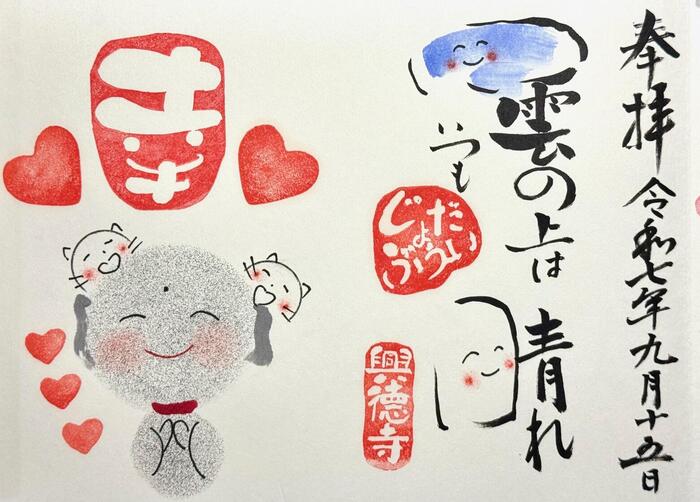 奉拝 令和七年九月十五日
雲の上は晴れ
いつも
だいじょうぶ
興徳寺